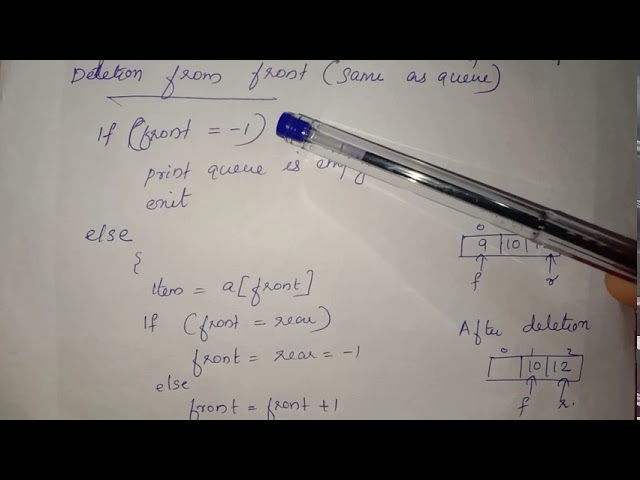 Deletion from front (same as queue)
If (front = -1)
print queue is empty
exit
else
{
item = a[front]
If (front = rear)
front = rear = -1
else
front = front +1
0
9 10 1
f r
After deletion
0 1 2
10 12
f r.